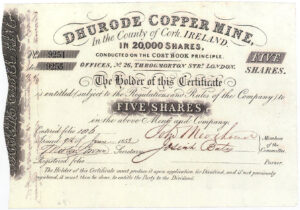 DHURODE COPPER MINE,
In the County of Cork, IRELAND,
IN 20,000 SHARES,
CONDUCTED ON THE COST BOOK PRINCIPLE.
OFFICES, Nº 26, THROGMORTON STT. LONDON.
9251
to
9255
FIVE
SHARES.
The Holder of this Certificate
is entitled (subject to the Regulations and Rules of the Company) to
FIVE SHARES
in the above Mine and Company.
Entered folio 106
Issued June 1852
Secretary
Registered folio
Members
of the
Committee
Purser.
The Holder of this Certificate must produce it upon application for Dividend, and if not previously
registered, it must then be done, to entitle the Party to the Dividend.